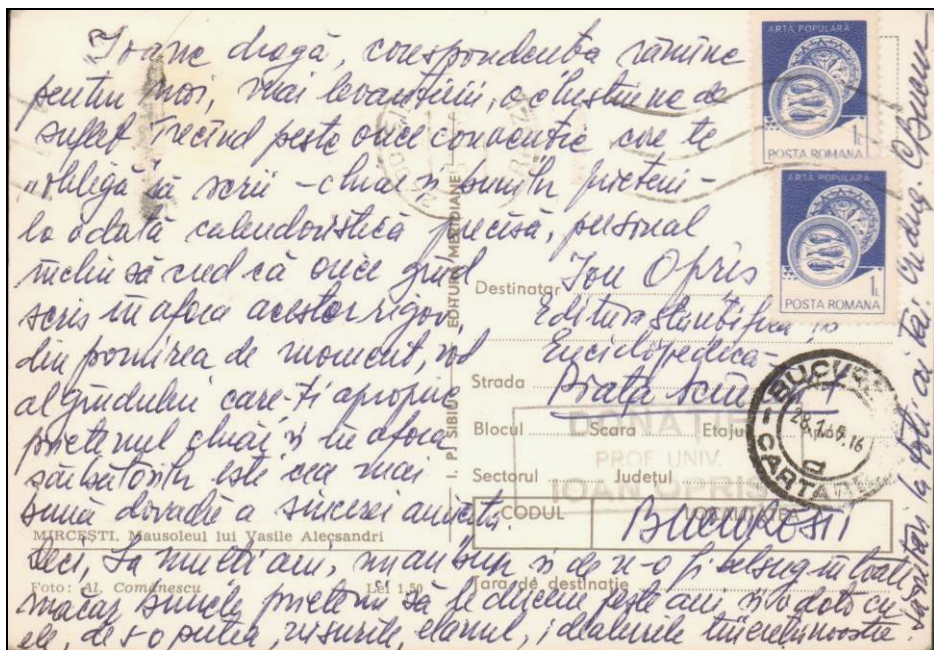 Ioane dragă, corespondența rămîne
pentru noi, mai levantinii, o chestiune de
suflet. Trecînd peste orice convenție care te
„obligă să scrii – chiar și bunilor prieteni –
la o dată calendaristică precisă, personal
înclin să cred că orice gînd
scris în afara acestor rigori,
din pornirea de moment, rod
al gîndului care-ți apropie
prietenul chiar și în afara
sărbătorilor este cea mai
bună dovadă a sincerei amiciții.
Deci, La mulți ani, mai bun și de n-o fi belșug în toate,
măcar bunele prietenii să le ducem peste ani și odată cu
ele, de s-o putea, visurile, elanul, idealurile tinereții noastre.
Sănătate la toți ai tăi! Cu drag
ARTA POPULARĂ
1L
POSTA ROMANA
ARTA POPULARĂ
1L
POSTA ROMANA
EDITURA MERIDIANE
I. P. SIBIU
Destinatar Ion Opriș
Editura Științifică și
Enciclopedică
Strada Piața Scînteii 1
Blocul Scara Etajul
Sectorul Județul
CODUL
București
Țara de destinație
DONAȚIE
PROF. UNIV.
IOAN OPRIȘ
CARTARE
MIRCEȘTI, Mausoleul lui Vasile Alecsandri
Foto: Al. Comănescu Lei 1,50